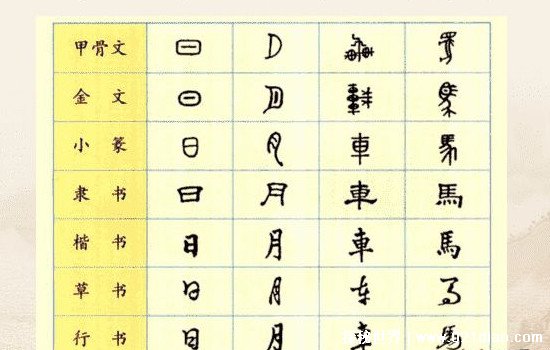 甲骨文 日 月 車 馬
金文 日 月 車 馬
小篆 日 月 車 馬
隶书 日 月 車 馬
楷书 日 月 車 馬
草书 日 月 车 马
行书 日 月